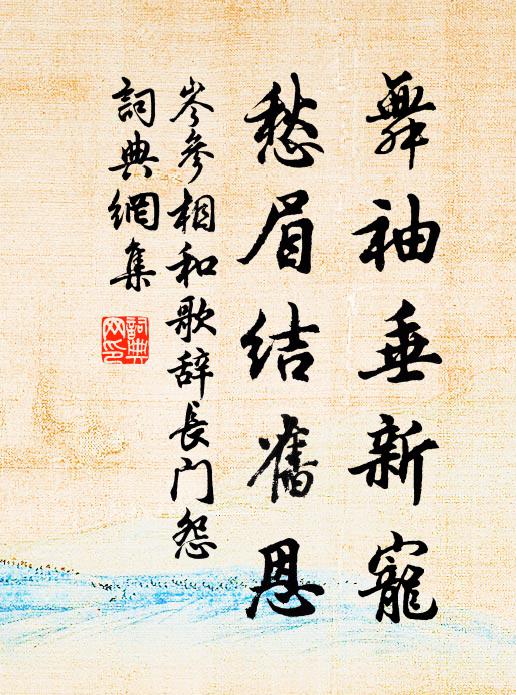 舞袖垂新寵
愁眉結舊恩
岑參相和歌辞長门怨
詞典網集
詞典网印